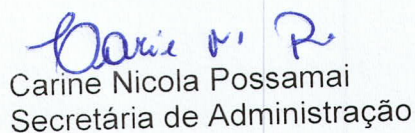 Carine Nicola Possamai
Secretária de Administração